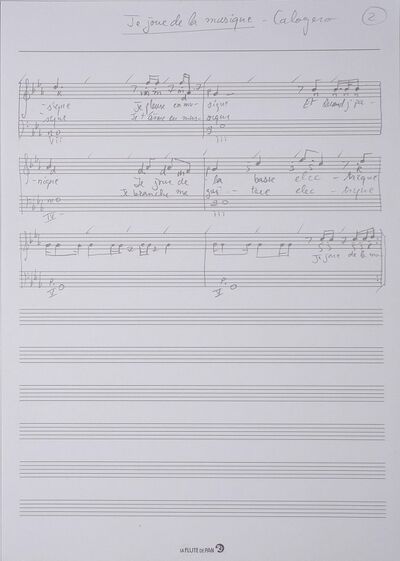 Je joue de la musique - Calogero 2
-sique Je pleure en mu- sique Et quand j'pa-
-sique Je t'aime en mus- sique
VII III
-nique Je joue de la basse élec - trique
Je branche ma gui - tare élec - trique
IV III
Je joue de la mu-
V V
LA FLUTE DE PAN